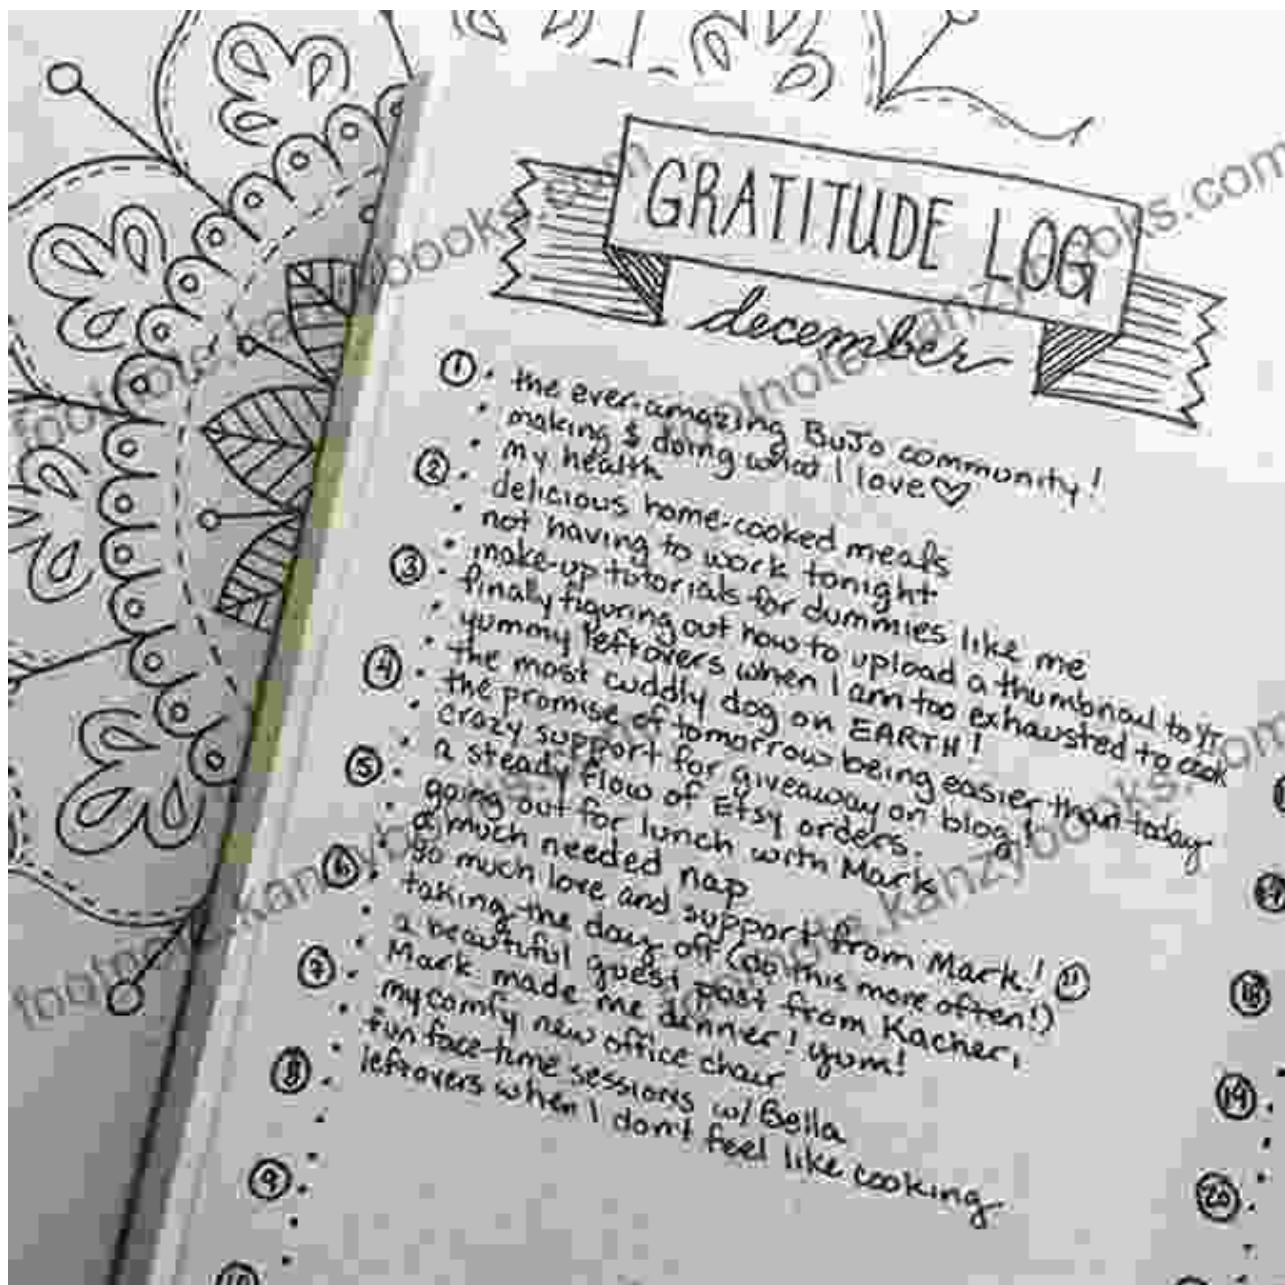 GRATITUDE LOG
december
① • the ever-amazing BuJo community!
• making & doing what I love ♡
• my health
② • delicious home-cooked meals
• not having to work tonight
• make-up tutorials for dummies like me
③ • finally figuring out how to upload a thumbnail to YT
• yummy leftovers when I am too exhausted to cook
• the most cuddly dog on EARTH!
④ • the promise of tomorrow being easier than today
• crazy support for giveaway on blog!
• a steady flow of Etsy orders.
⑤ • going out for lunch with Mark
• a much needed nap
• so much love and support from Mark!
⑥ • taking the day off (do this more often!) ⑪
• a beautiful guest post from Kacheri
• Mark made me dinner! yum!
⑦ • my comfy new office chair
• fun face-time sessions w/ Bella
• leftovers when I don't feel like cooking.
⑧
⑨
⑩
⑱
⑲
⑳
footnote.kanzybooks.com